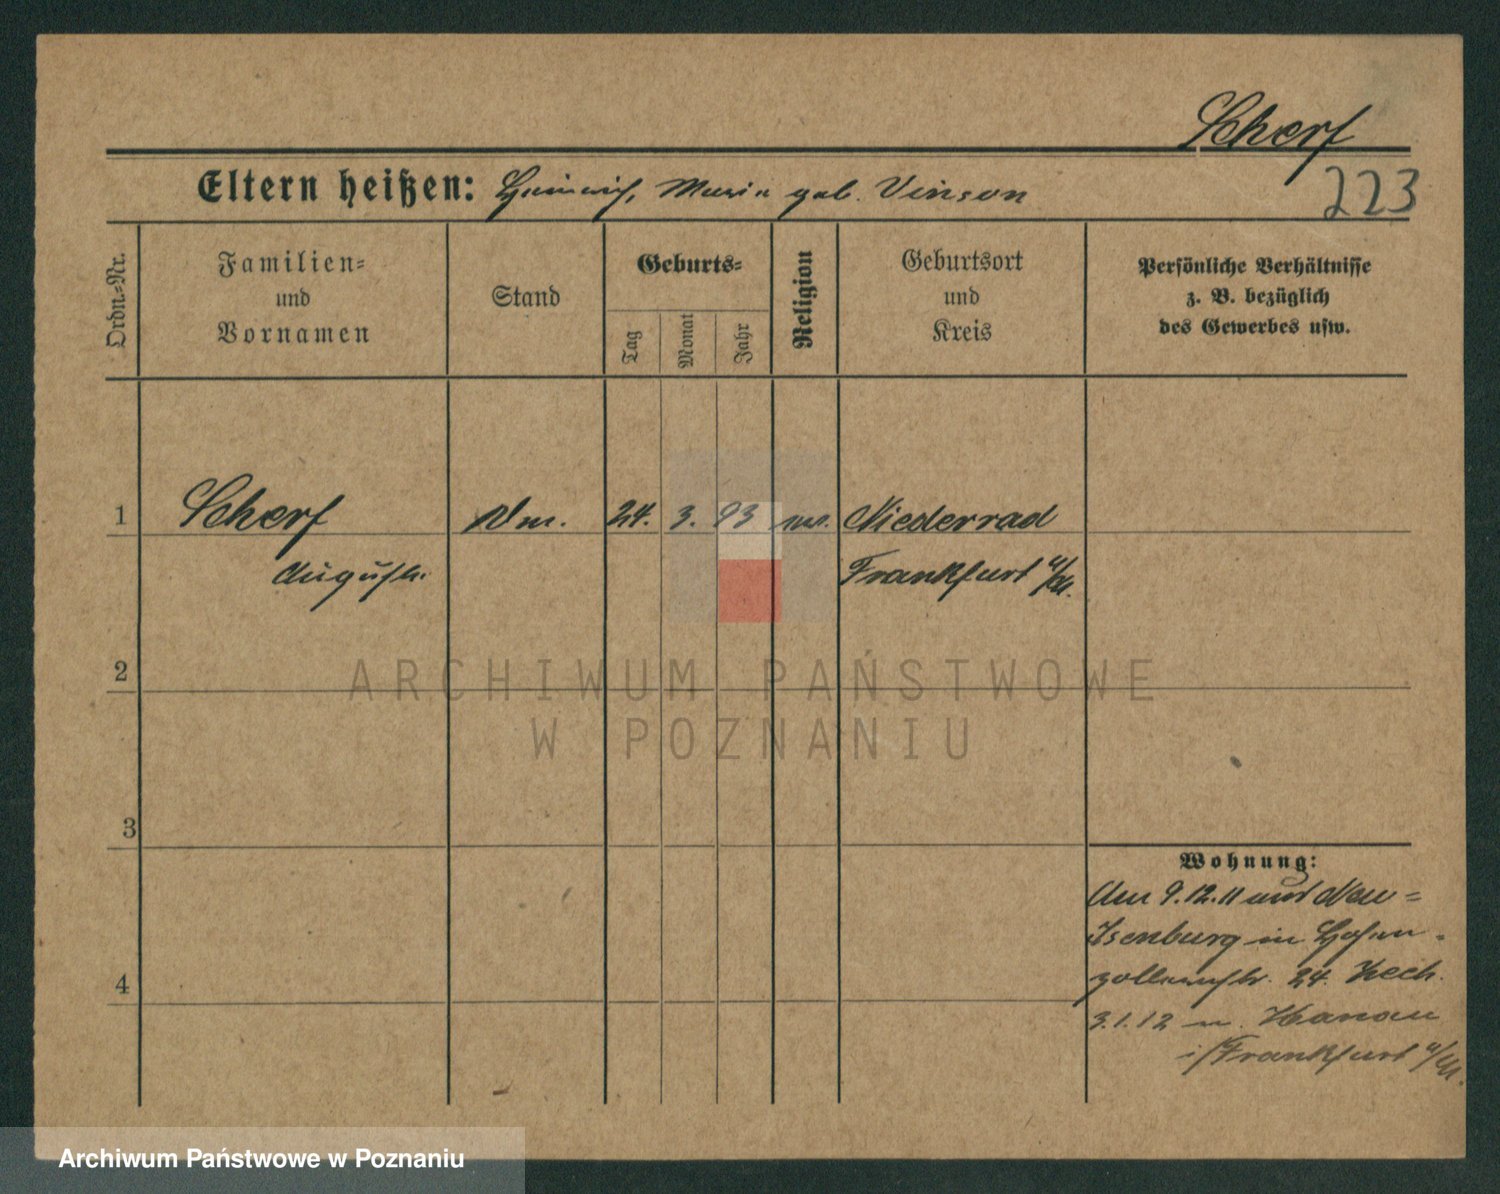 Scherf
Eltern heißen: Heinrich, Maria geb. Vinson
223
Ordn.-Nr.
Familien-
und
Vornamen
Stand
Geburts-
Tag
Monat
Jahr
Religion
Geburtsort
und
Kreis
Persönliche Verhältnisse
z. B. bezüglich
des Gewerbes usw.
1 Scherf 24. 3. 93 Niederrad
Frankfurt a/M.
2
ARCHIWUM PAŃSTWOWE
W POZNANIU
3
Wohnung:
Am 9.12.11 aus Neu-
Isenburg in Hohen-
zollernstr. 24.
3.1.12 n. Hanau
Frankfurt a/M.
4
Archiwum Państwowe w Poznaniu